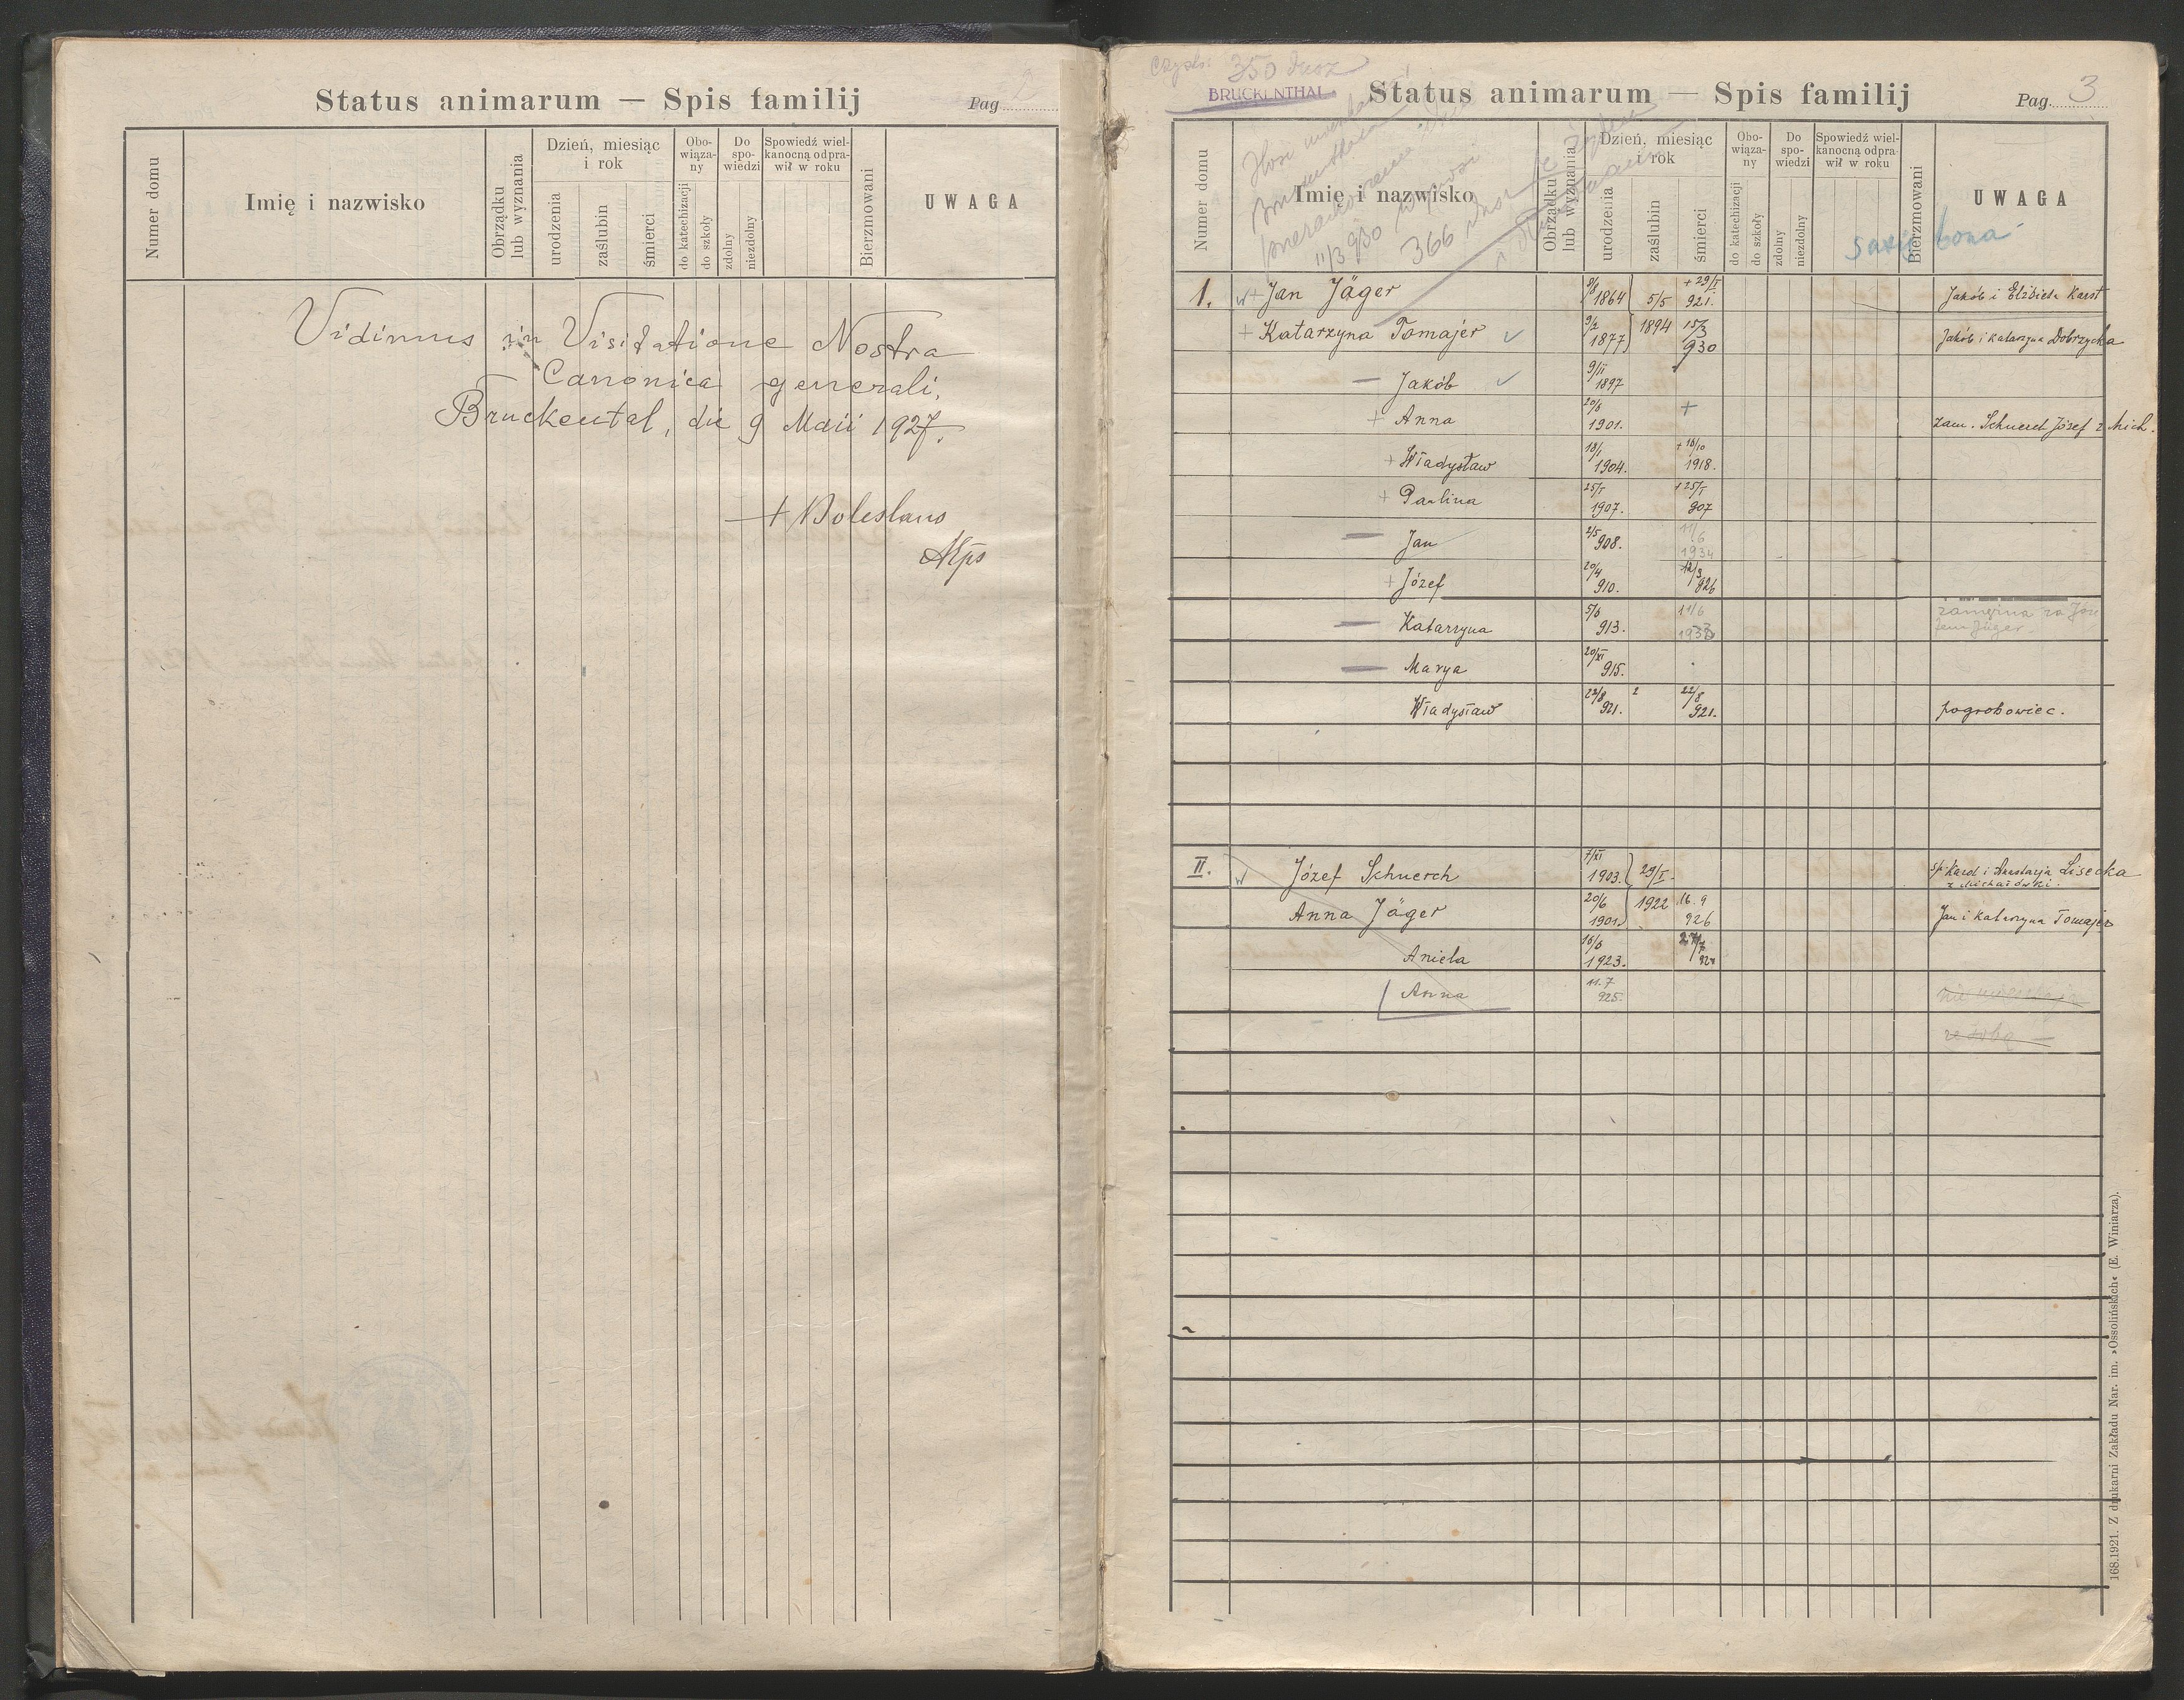 Status animarum — Spis familij
Pag. 2
Numer domu
Imię i nazwisko
Obrządku lub wyznania
Dzień, miesiąc i rok
urodzenia
zaślubin
śmierci
Obo-wiąza-ny
do katechizacji
do szkoły
Do spo-wiedzi
zdolny
niezdolny
Spowiedź wiel-kanocną odpra-wił w roku
Bierzmowani
UWAGA
Vidimus in Visitatione Nostra
Canonica generali,
Bruckental, die 9 Maii 1927.
+ Boleslaus
AEps
350 dusz
BRUCKENTHAL.
Status animarum — Spis familij
Pag. 3
Numer domu
Imię i nazwisko
11/3 930
366 dusz
Obrządku lub wyznania
Dzień, miesiąc i rok
urodzenia
zaślubin
śmierci
Obo-wiąza-ny
do katechizacji
do szkoły
Do spo-wiedzi
zdolny
niezdolny
Spowiedź wiel-kanocną odpra-wił w roku
Bierzmowani
UWAGA
bona
1. w + Jan Jäger 1864 5/5 + 29/I 921. Jakób i Elżbieta Karst
+ Katarzyna Tomajer ✓ 9/2 1877 1894 15/3 930 Jakób i Katarzyna Dobrzycka
— Jakób ✓ 9/II 1897
+ Anna 20/6 1901. + zam. Schuerch Józef z Mich.
+ Władysław 18/1 1904. + 18/10 1918.
+ Paulina 25/I 1907. + 25/I 907
— Jan 2/5 908. 11/6 1934
+ Józef 20/4 910. 12/3 926
— Katarzyna 5/6 913. 11/6 zamężna za Józe
fem Jäger
— Marya 20/XI 915.
Władysław 22/8 921. 22/8 921. pogrobowiec.
II. w Józef Schuerch 7/XI 1903. 29/I śp. Karol i Anastazja Lisecka
z Michałówki.
Anna Jäger 20/6 1901. 1922 16. 9 926 Jan i Katarzyna Tomajer
Aniela 16/6 1923. 27/7
Anna 11. 7 925. nie mieszkają
ze sobą —
168.1921. Z drukarni Zakładu Nar. im. »Ossolińskich« (E. Winiarza).